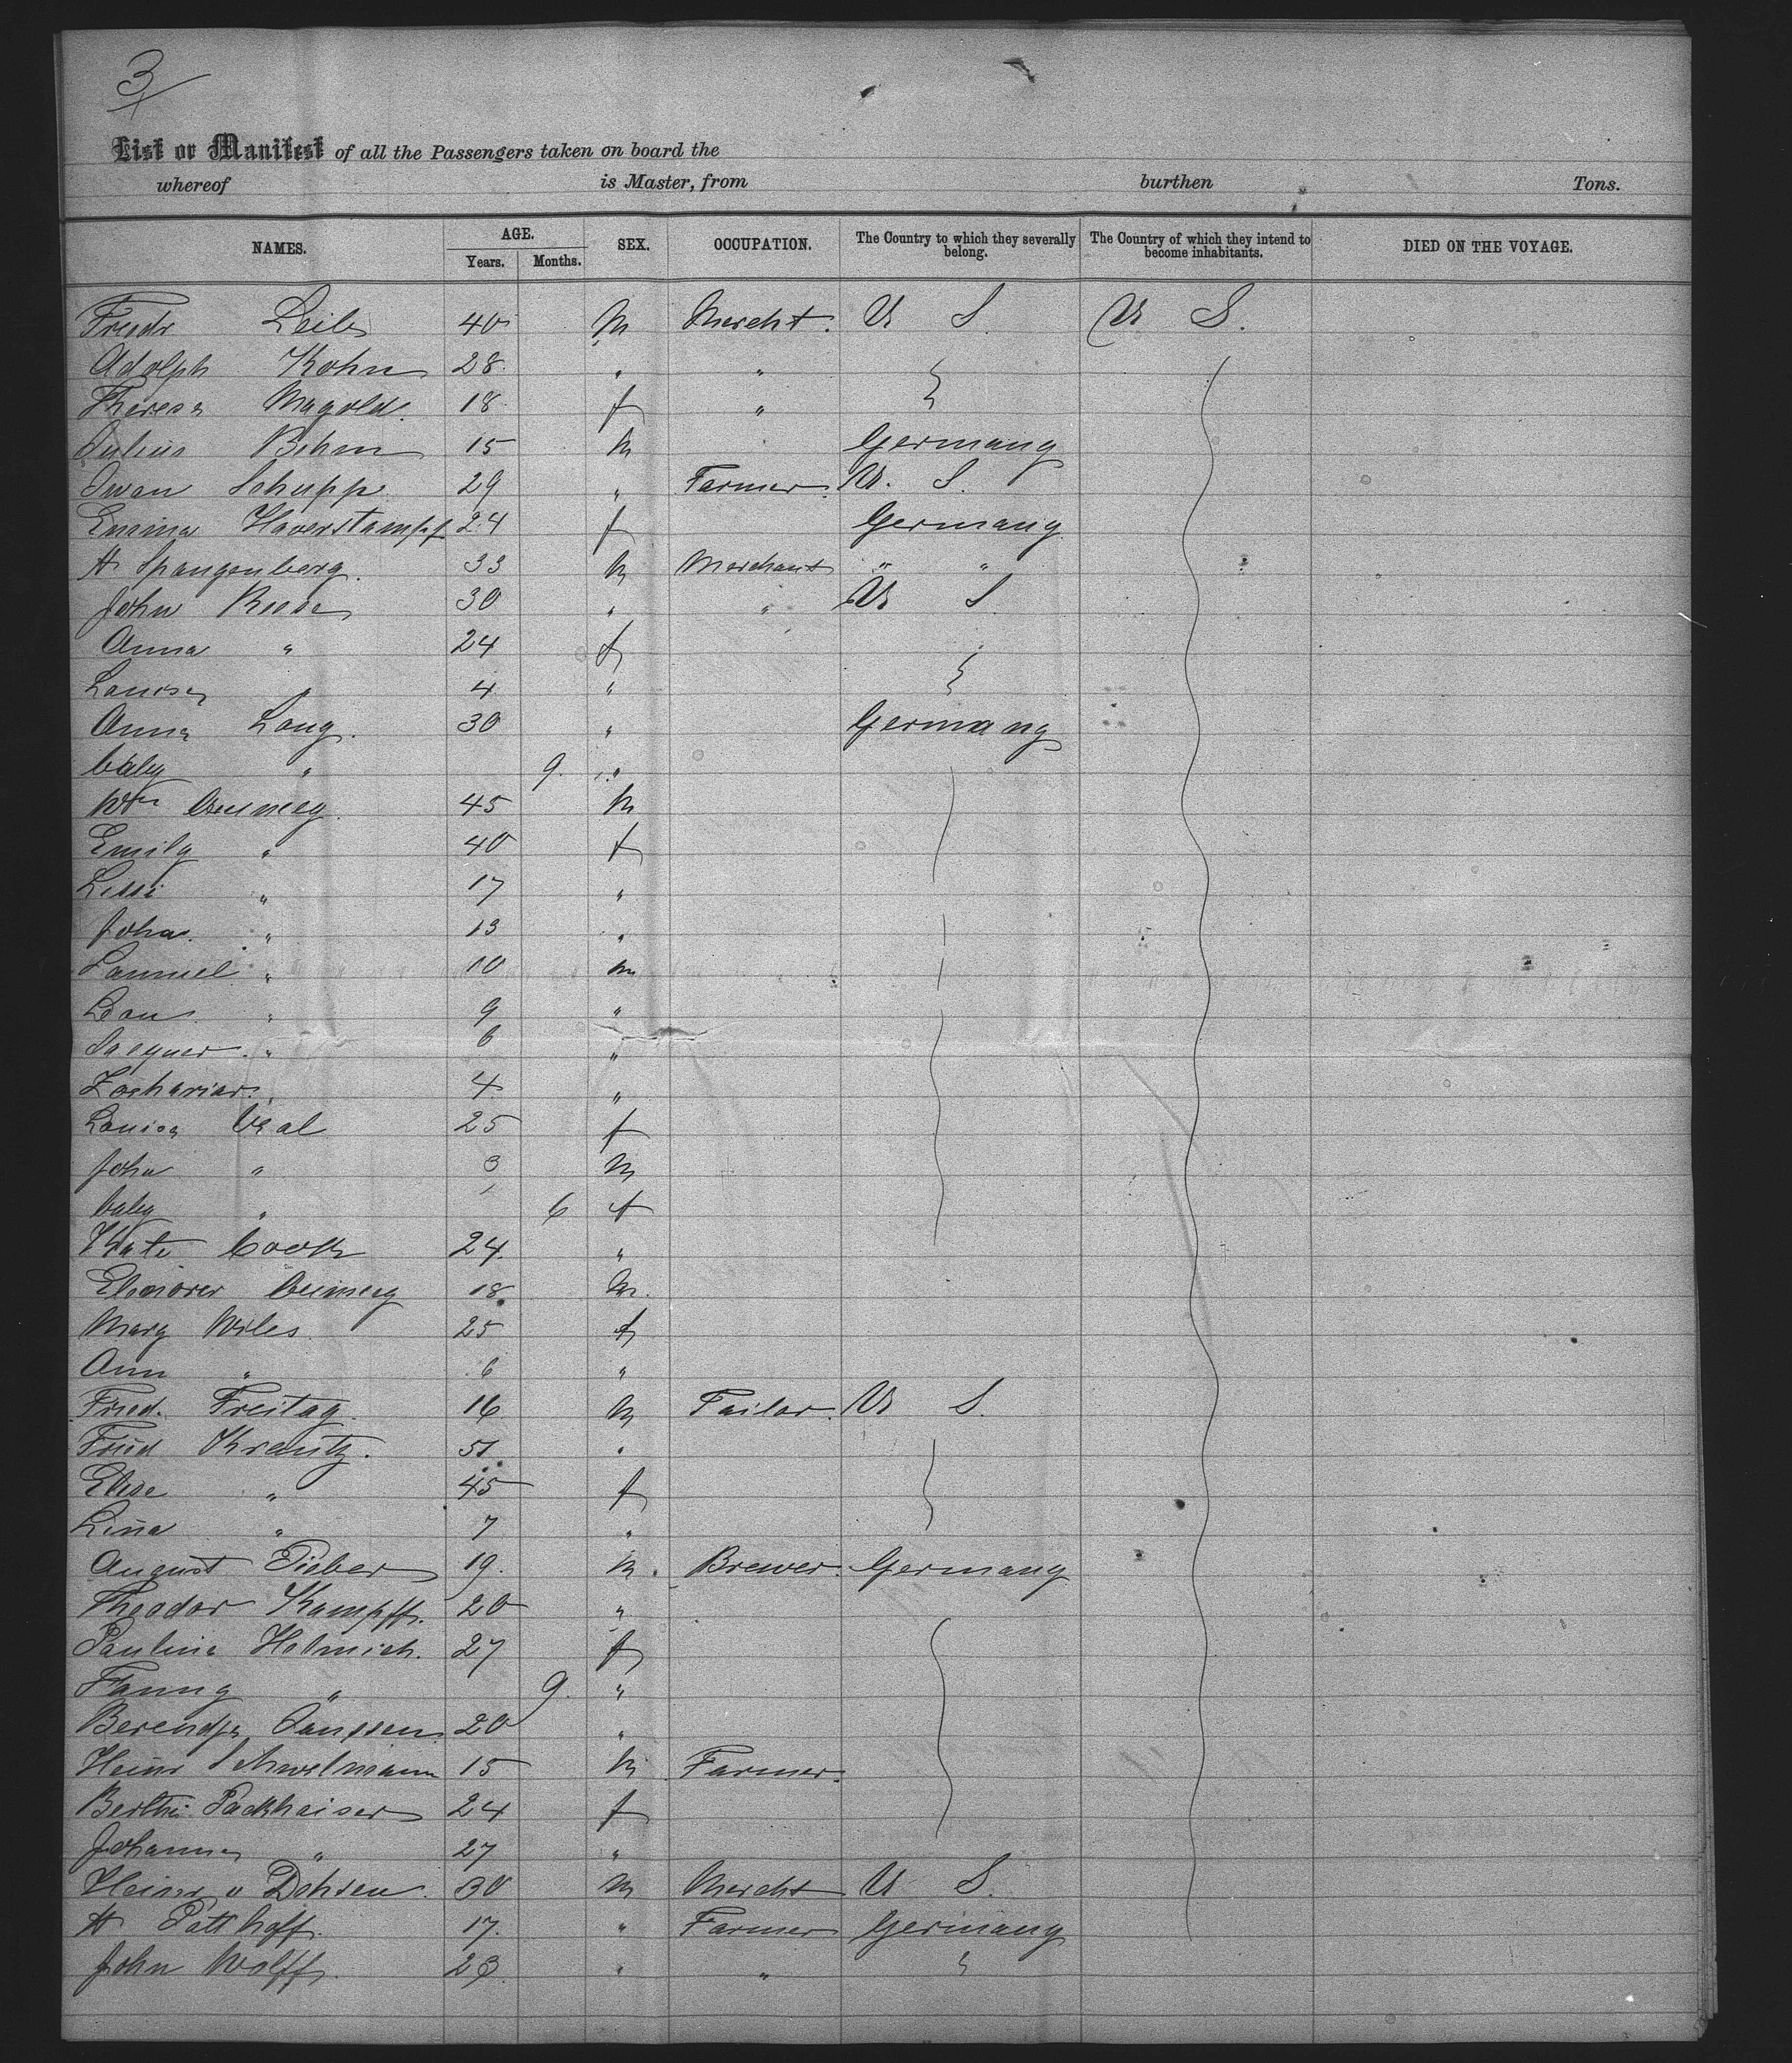 3
List or Manifest of all the Passengers taken on board the
whereof is Master, from burthen Tons.
NAMES. AGE. Years. Months. SEX. OCCUPATION. The Country to which they severally belong. The Country of which they intend to become inhabitants. DIED ON THE VOYAGE.
Friedr 40 M Mercht. U S. U S.
Adolph Kohn 28 " "
Theresa Magold. 18 f "
Julius Behm 15 M Germany
Iwan Schupp 29 " Farmer. U. S.
Emma Haverstampf 24 f Germany
H Spangenberg. 33 M Merchant " "
John Reese 30 " " U S
Anna " 24 f
Louisa " 4 "
Anna Lang. 30 " Germany
baby " 9. "
Wm 45 M
Emily " 40 f
" 17 "
Joha. " 13 "
Samuel " 10 m
" 9 "
" 6 "
Zacharias. " 4 "
Louisa 25 f
John " 3 M
baby " 6 f
Kate Cook 24. "
18 M.
Mary Wiles 25 f
Ann " 6 "
Fried. Freitag. 16 M Tailor. U S.
Fried Krantz. 51. "
Elise " 45 f
Lina " 7 "
August Pieber 19. M. Brewer. Germany
Theodor Kampff. 20 "
Pauline Helmich. 27 f
Fanny " 9. "
Janssen. 20 "
Heinr Schwelmann 15 M Farmer.
Bertha Packhaiser 24 f
Johanna " 27 "
Heinr v Dohren. 30 M Mercht U S.
H Potthoff. 17. " Farmer Germany
John Wolff. 23. " "